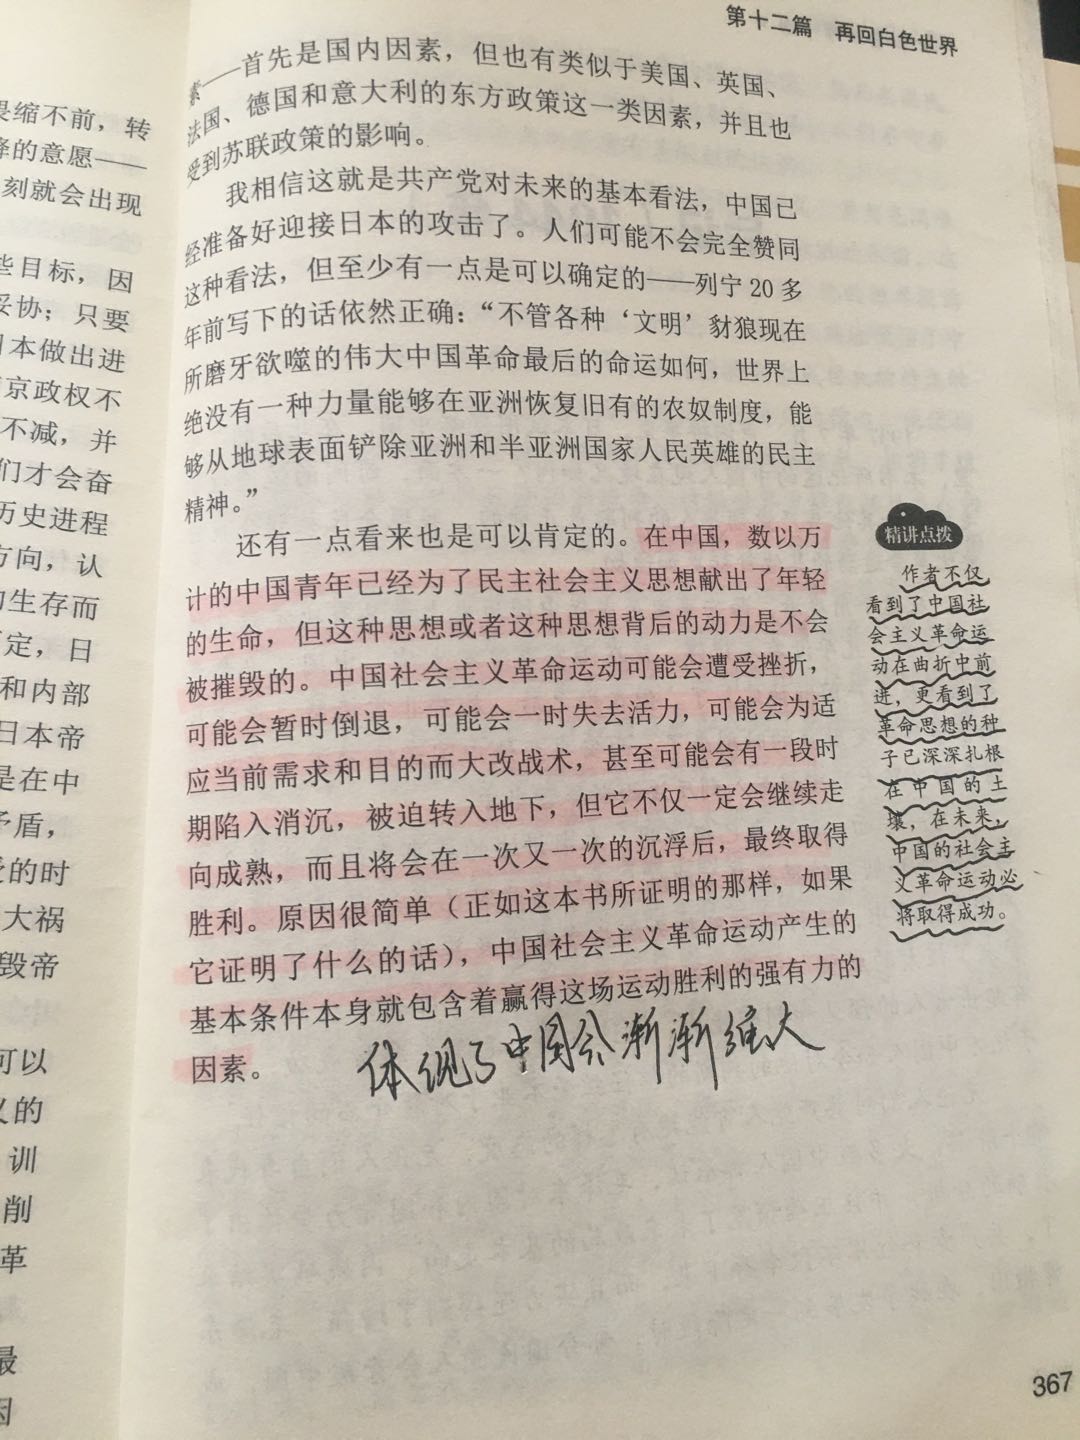 畏缩不前，转
的意愿——
刻就会出现
些目标，因
妥协；只要
日本做出进
南京政权不
不减，并
们才会奋
历史进程
方向，认
的生存而
定，日
和内部
日本帝
是在中
矛盾，
的时
大祸
毁帝
可以
义的
训
削
革
最
因
第十二篇 再回白色世界
素——首先是国内因素，但也有类似于美国、英国、
法国、德国和意大利的东方政策这一类因素，并且也
受到苏联政策的影响。
我相信这就是共产党对未来的基本看法，中国已
经准备好迎接日本的攻击了。人们可能不会完全赞同
这种看法，但至少有一点是可以确定的——列宁 20 多
年前写下的话依然正确：“不管各种‘文明’豺狼现在
所磨牙欲噬的伟大中国革命最后的命运如何，世界上
绝没有一种力量能够在亚洲恢复旧有的农奴制度，能
够从地球表面铲除亚洲和半亚洲国家人民英雄的民主
精神。”
还有一点看来也是可以肯定的。在中国，数以万
计的中国青年已经为了民主社会主义思想献出了年轻
的生命，但这种思想或者这种思想背后的动力是不会
被摧毁的。中国社会主义革命运动可能会遭受挫折，
可能会暂时倒退，可能会一时失去活力，可能会为适
应当前需求和目的而大改战术，甚至可能会有一段时
期陷入消沉，被迫转入地下，但它不仅一定会继续走
向成熟，而且将会在一次又一次的沉浮后，最终取得
胜利。原因很简单（正如这本书所证明的那样，如果
它证明了什么的话），中国社会主义革命运动产生的
基本条件本身就包含着赢得这场运动胜利的强有力的
因素。
体现了中国会渐渐强大
精讲点拨
作者不仅
看到了中国社
会主义革命运
动在曲折中前
进，更看到了
革命思想的种
子已深深扎根
在中国的土
壤，在未来，
中国的社会主
义革命运动必
将取得成功。
367